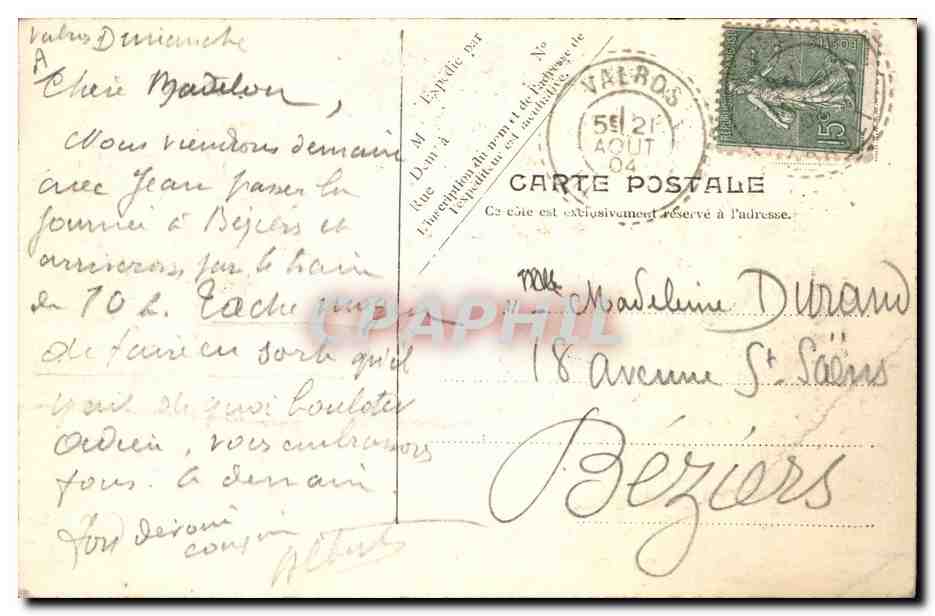 Valros Dimanche
Chère Madelon,
Nous viendrons demain
avec Jean passer la
journée à Béziers et
arriverons par le train
de 10 h. Tache
de faire en sorte qu'il
y ait de quoi boulotter
adieu, vous embrassons
tous. à demain
Ton dévoué
cousin
Albert
Expédié par
M
Dem à
Rue
N°
L'inscription du nom et de l'adresse de
l'expéditeur est facultative.
VALROS
5E 21
AOUT
04
15c
CARTE POSTALE
Ce côté est exclusivement réservé à l'adresse.
Mlle Madeleine Durand
18 avenue St. Saëns
Béziers
CPAPHIL